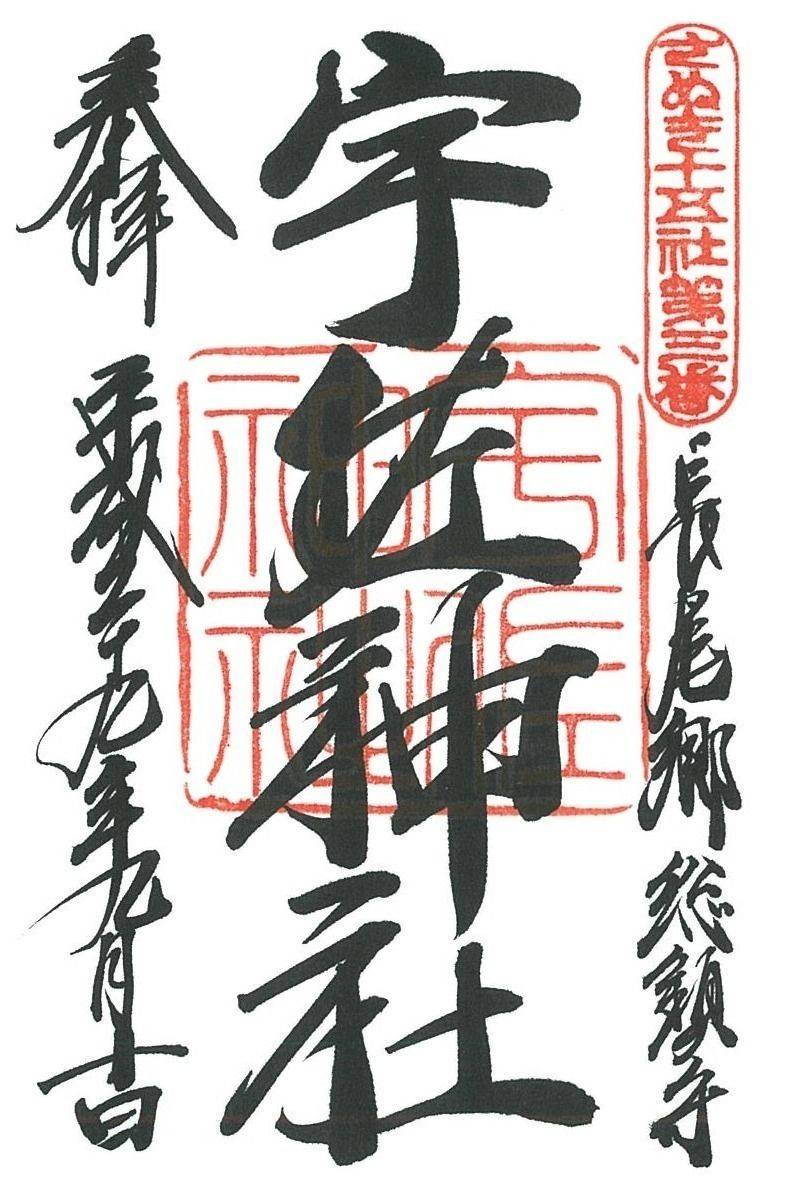 さぬき十五社第三番
長尾郷総鎮守
宇佐神社
宇佐神社
奉拝
平成二十九年九月吉日